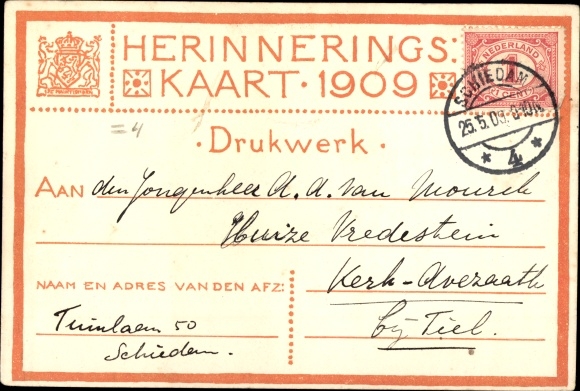 HERINNERINGS·
KAART·1909
NEDERLAND
1 CENT
SCHIEDAM
25.5.09. 8-10N.
4
=4
·Drukwerk·
AAN den Jongenheer A. A. van Mourik
Huize Vredestein
Kerk-Avezaath
bij Tiel.
NAAM EN ADRES VAN DEN AFZ:
Tuinlaan 50
Schiedam.